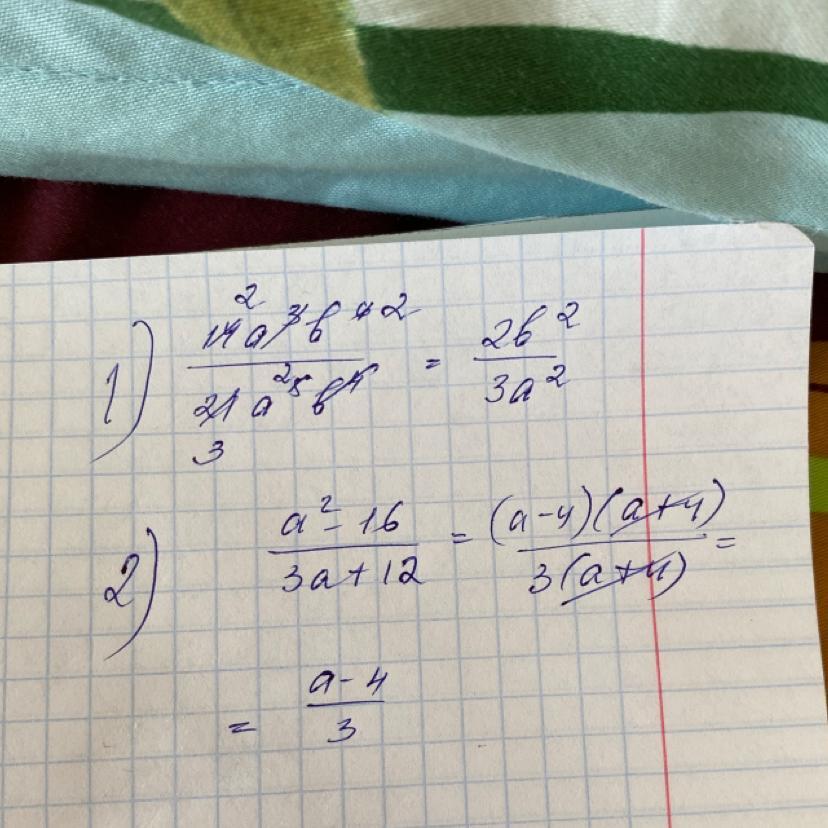 1) 14a³b⁴/21a⁵b⁴ = 2b²/3a²
2) a² - 16/3a + 12 = (a - 4)(a + 4)/3(a + 4) =
= a - 4/3